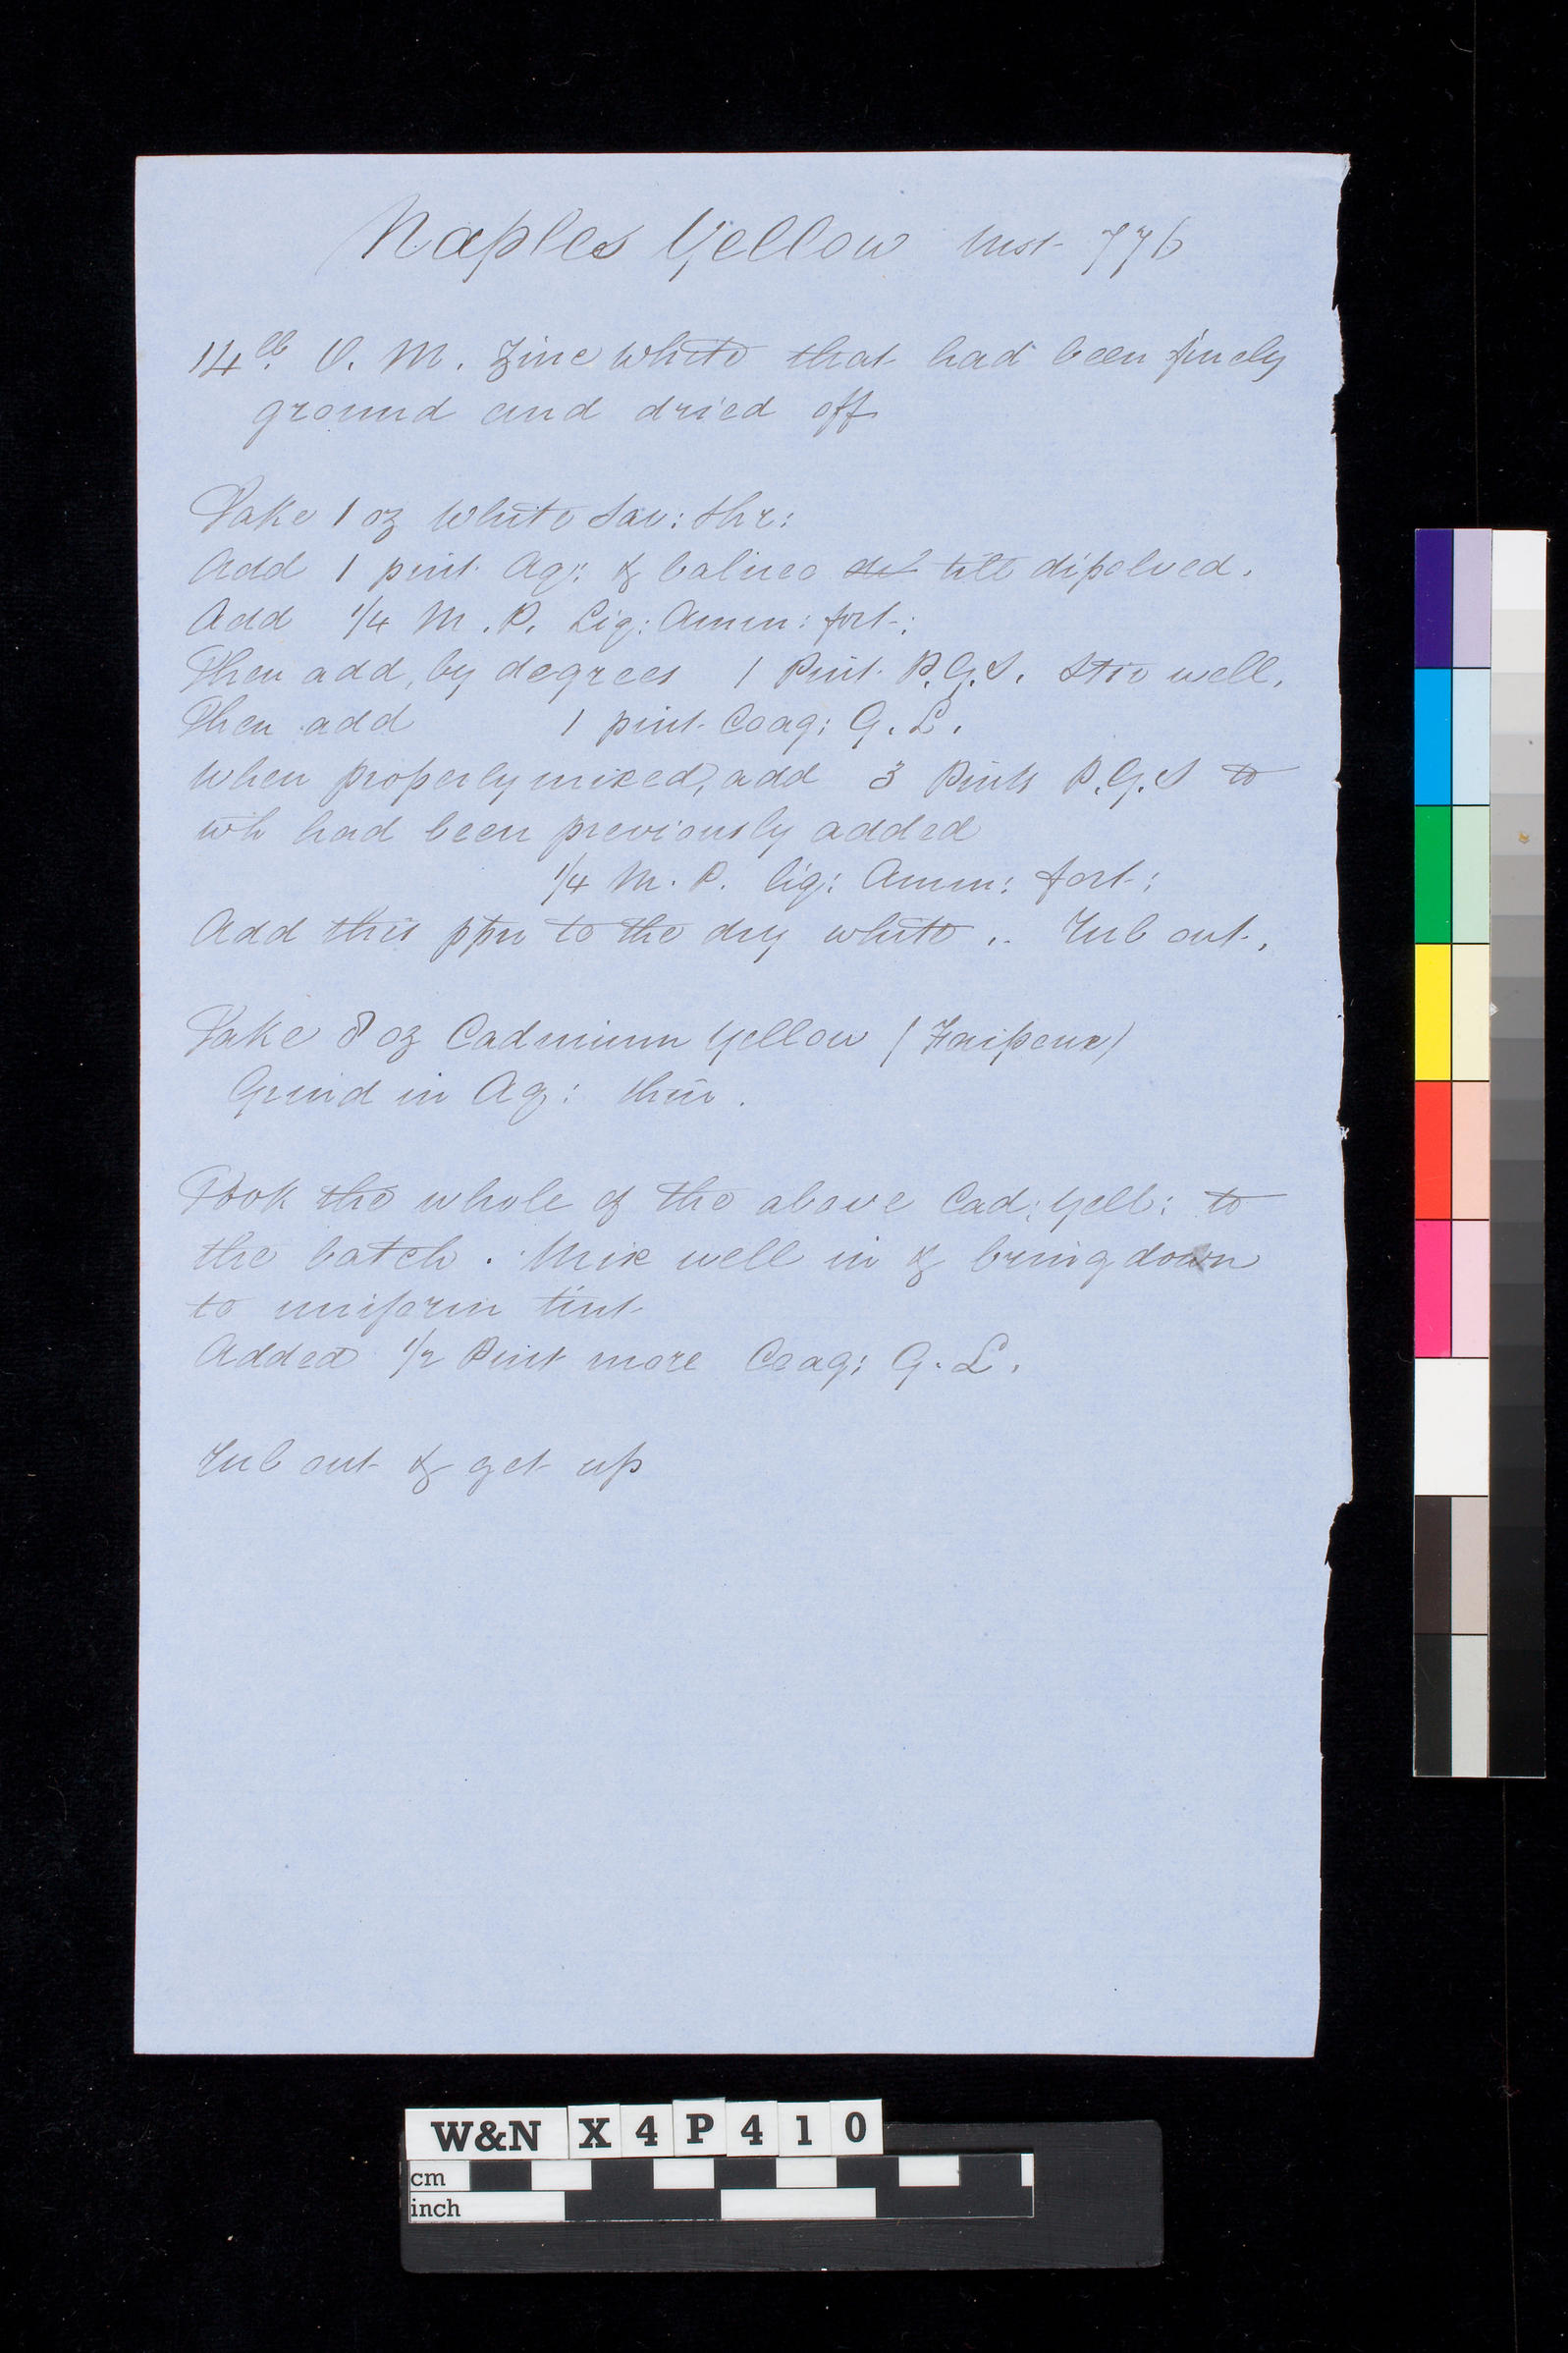 Naples Yellow Mst 776
14 lb. V. M. Zinc White that had been finely
ground and dried off
Take 1 oz White Sav: Shr:
Add 1 pint Aq: & balneo till dissolved.
Add 1/4 M. P. Liq: Amm: fort:
Then add, by degrees 1 Pint P.G.S. Stir well.
Then add 1 pint Coag: G. L.
When properly mixed, add 3 Pints P.G.S to
wh had been previously added
1/4 M. P. liq: Amm: fort:
Add this ppn to the dry white . Tub out.
Take 8 oz Cadmium Yellow
Grind in Aq: thin.
Took the whole of the above Cad: Yell: to
the batch. Mix well in & bring down
to uniform tint
Added 1/2 Pint more Coag: G. L.
Tub out & get up
W&N X4P410
cm
inch